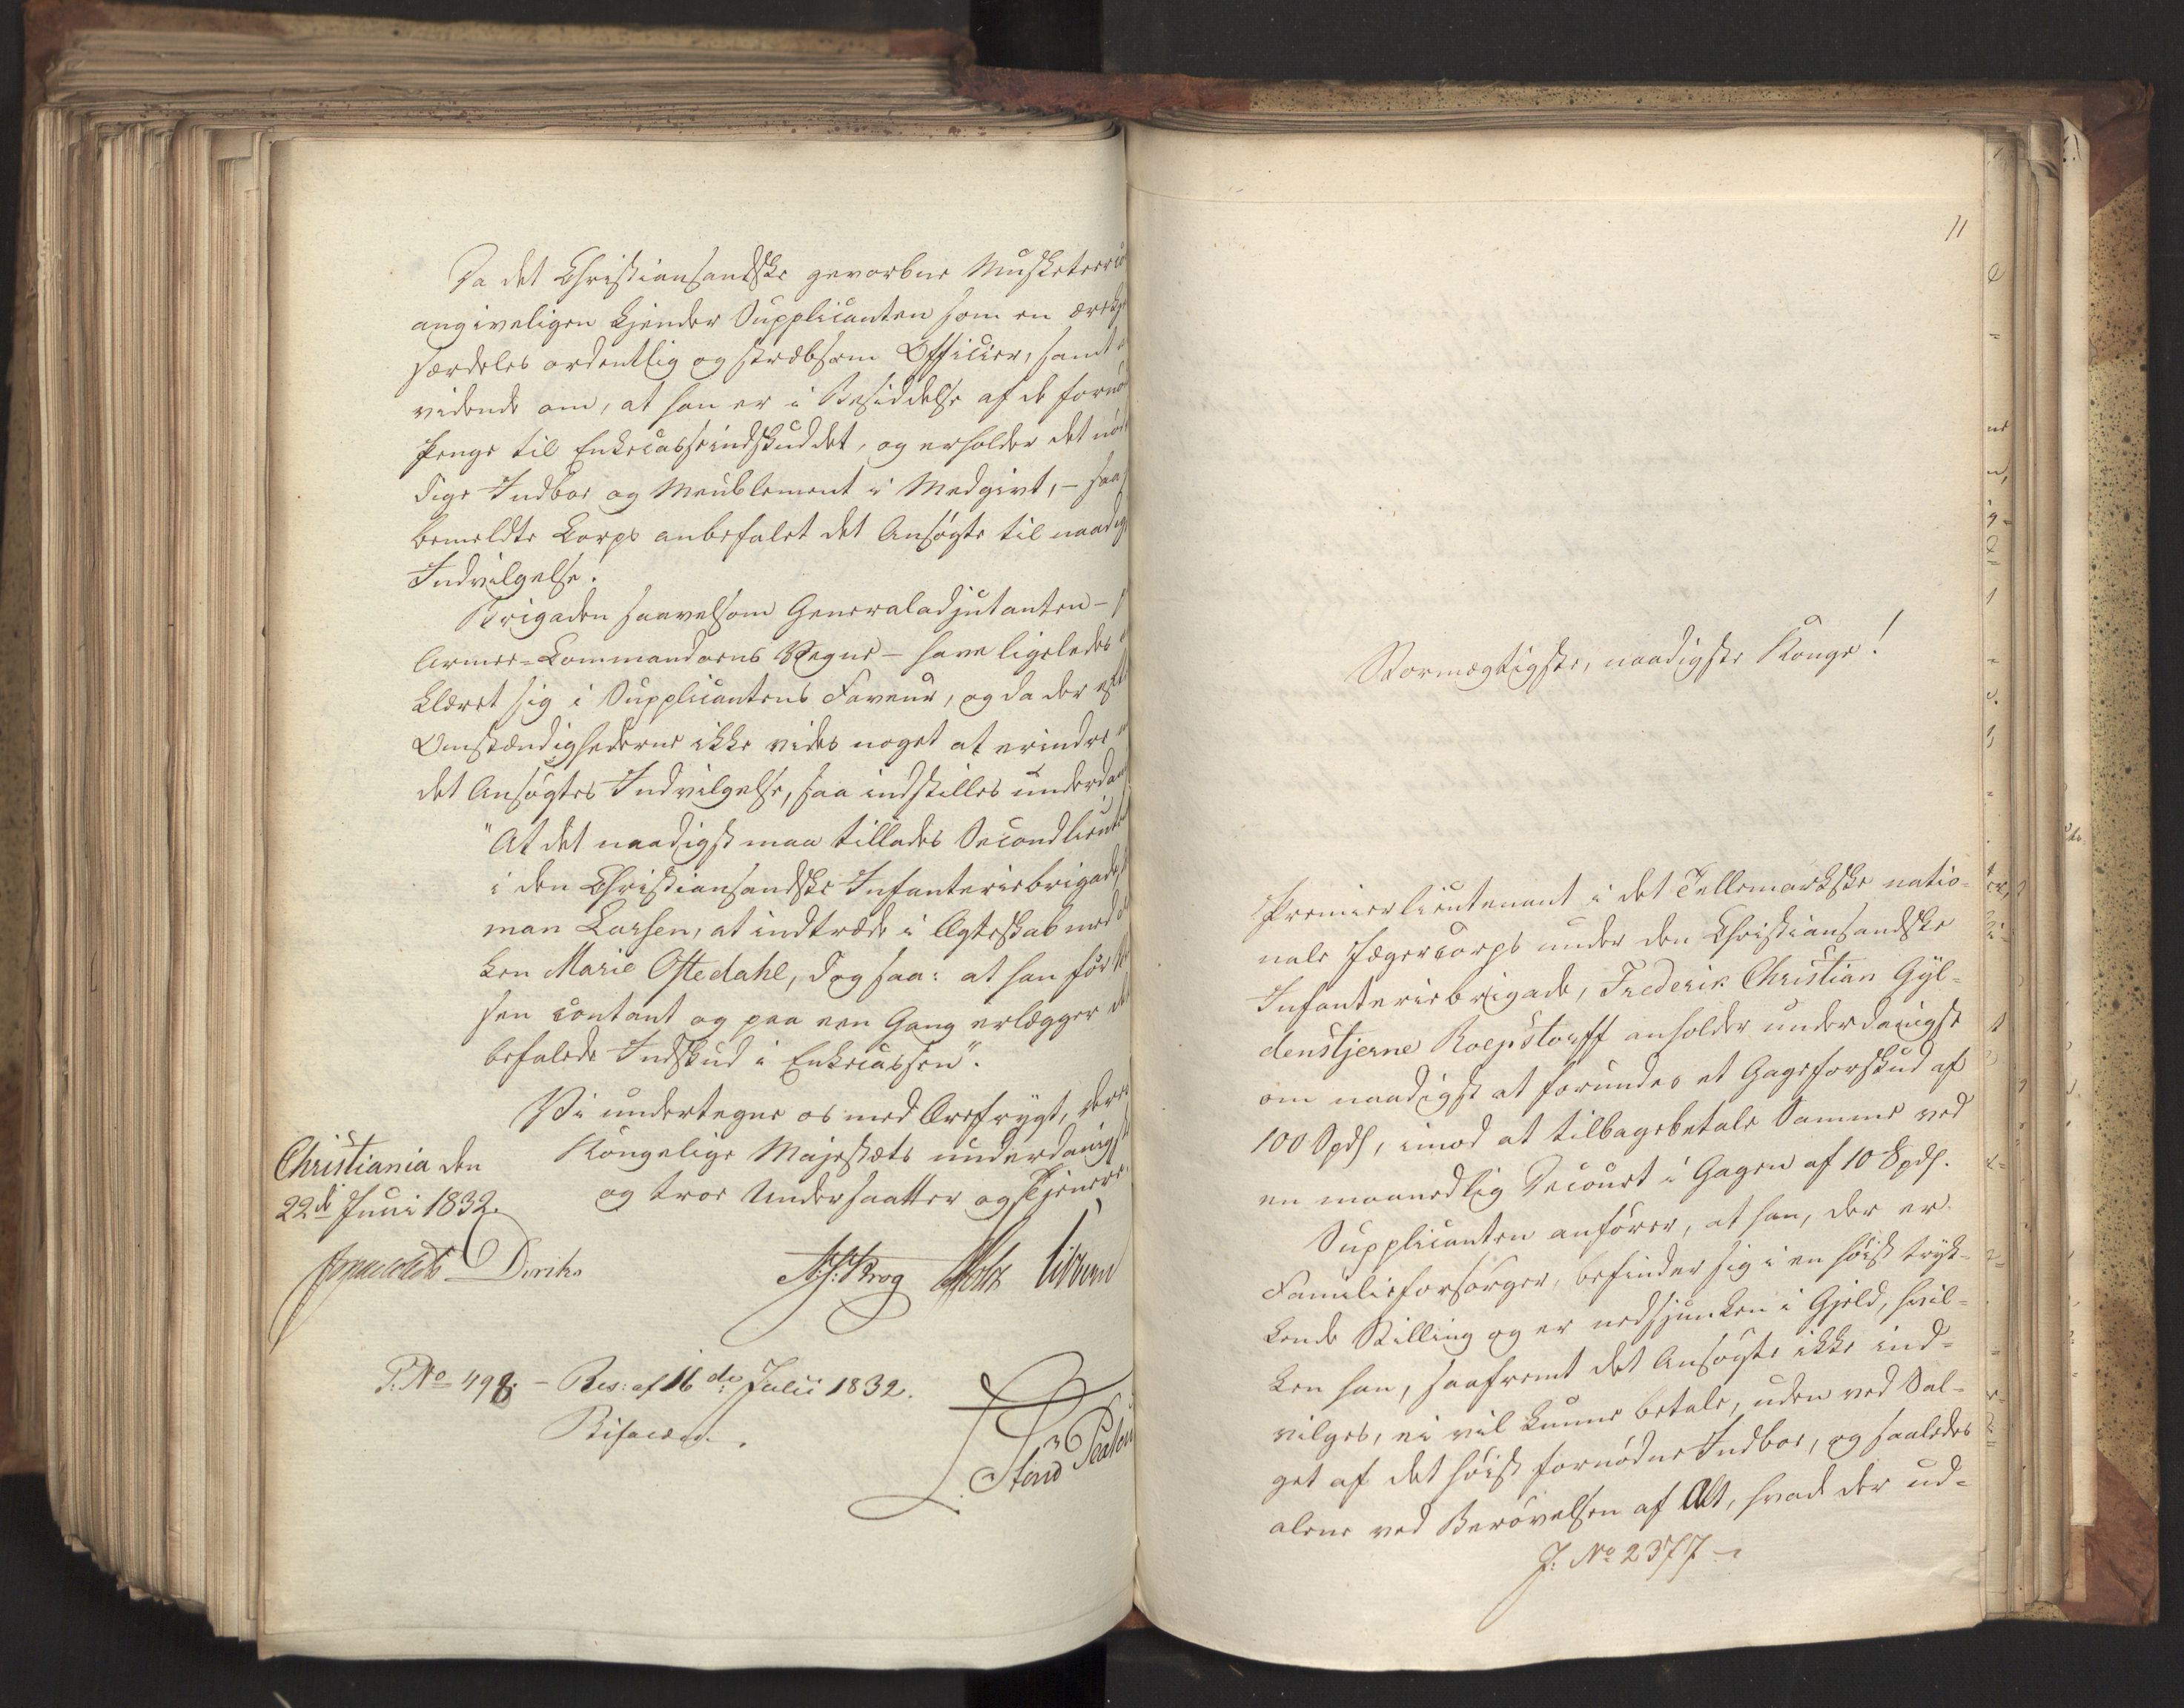 Da det Christiansandske gevorbne Musketeerco
angiveligen kjender Supplicanten som en
særdeles ordentlig og stræbsom Officier, samt
vidende om, at han er i Besiddelse af de fornø
Penge til Enkecasseindskuddet, og erholder det nød
dige Indboe og Meublement i Medgivt, – saa
bemeldte Corps anbefalet det Ansøgte til naadig
Indvilgelse.
Brigaden saavelsom Generaladjutanten –
Armee-Commandoens Vegne – have ligeledes
klæret sig i Supplicantens Faveur, og da der eft
Omstændighederne ikke vides noget at erindre
det Ansøgtes Indvilgelse, saa indstilles underdan
"At det naadigst maa tillades Secondlieut
i den Christiansandske Infanteriebrigade,
man Larsen, at indtræde i Ægteskab med
ken Marie Oftedahl, dog saa: at han før
sen contant og paa een Gang erlægger d
befalede Indskud i Enkecassen".
Vi undertegne os med Ærefrygt, Deres
Kongelige Majestæts underdanigst
og troe Undersaatter og Tjenere.
Christiania den
22de Juni 1832.
Diriks
Krog Holst
P. No 498. – Res: af 16de Julii 1832.
Bifaldes.
11
Stormægtigste, naadigste Konge!
Premierlieutenant i det Tellemarkske natio-
nale Jægercorps under den Christiansandske
Infanteriebrigade, Frederik Christian Gyl-
denstjerne Roepstorff anholder underdanigst
om naadigst at forundes et Gageforskud af
100 Spd, imod at tilbagebetale Samme ved
en maanedlig Decourt i Gagen af 10 Spd.
Supplicanten anfører, at han, der er
Familieforsørger, befinder sig i en høist tryk-
kende Stilling og er nedsjunken i Gjeld, hvil-
ken han, saafremt det Ansøgte ikke ind-
vilges, ei vil kunne betale, uden ved Sal-
get af det høist fornødne Indboe, og saaledes
alene ved Berøvelsen af Alt, hvad der ud-
J. No 2377